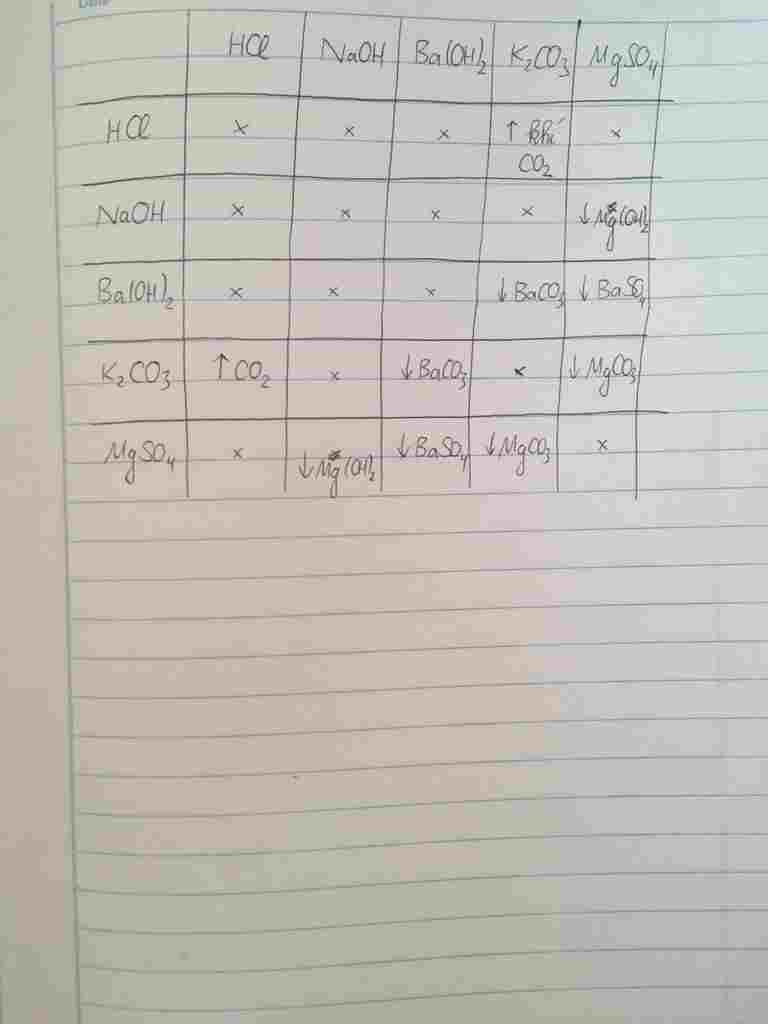 Date
HCl NaOH Ba(OH)2 K2CO3 MgSO4
HCl × × × ↑ khí CO2 ×
NaOH × × × × ↓Mg(OH)2
Ba(OH)2 × × × ↓BaCO3 ↓BaSO4
K2CO3 ↑CO2 × ↓BaCO3 × ↓MgCO3
MgSO4 × ↓Mg(OH)2 ↓BaSO4 ↓MgCO3 ×